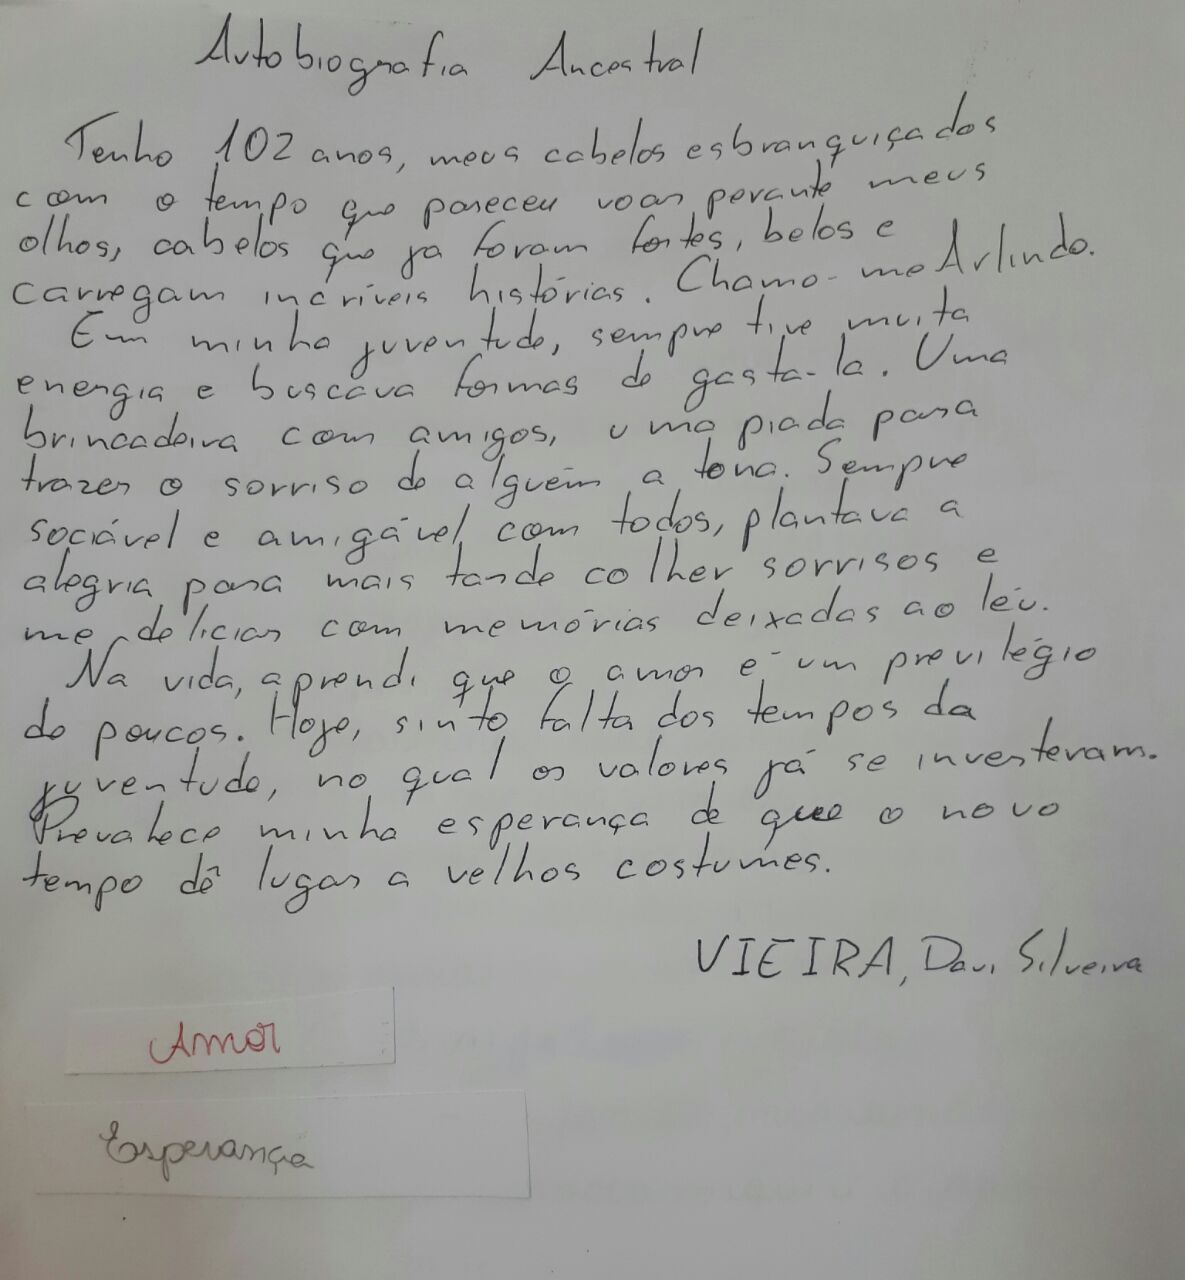 Autobiografia Ancestral
Tenho 102 anos, meus cabelos esbranquiçados
com o tempo que pareceu voar perante meus
olhos, cabelos que ja foram fortes, belos e
carregam incríveis histórias. Chamo-me Arlindo.
Em minha juventude, sempre tive muita
energia e buscava formas de gasta-la. Uma
brincadeira com amigos, uma piada para
trazer o sorriso de alguém a tona. Sempre
sociável e amigável com todos, plantava a
alegria para mais tarde colher sorrisos e
me deliciar com memórias deixadas ao léu.
Na vida, aprendi que o amor é um previlégio
de poucos. Hoje, sinto falta dos tempos da
juventude, no qual os valores já se investeram.
Prevalece minha esperança de que o novo
tempo dê lugar a velhos costumes.
VIEIRA, Davi Silveira
Amor
Esperança